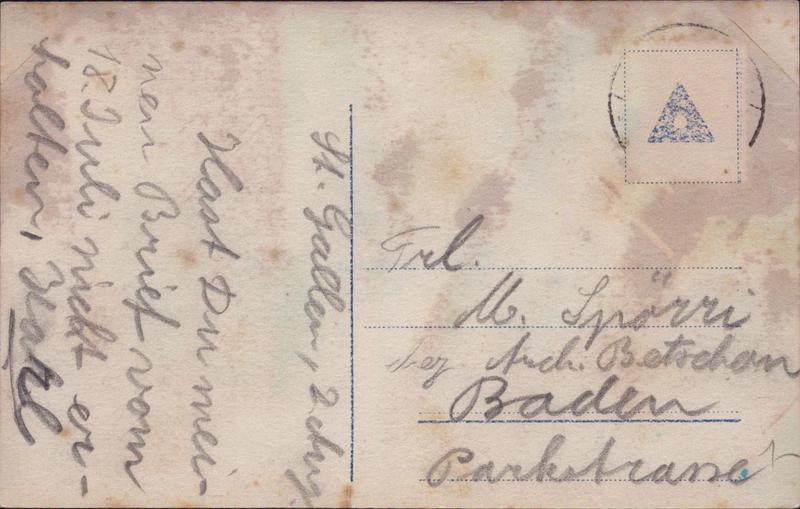 St. Gallen, 2. Aug.
Hast Du mei-
nen Brief vom
18. Juli nicht er-
halten, Karl
Frl.
M. Spörri
bez Arch. Betschon
Baden
Parkstrasse